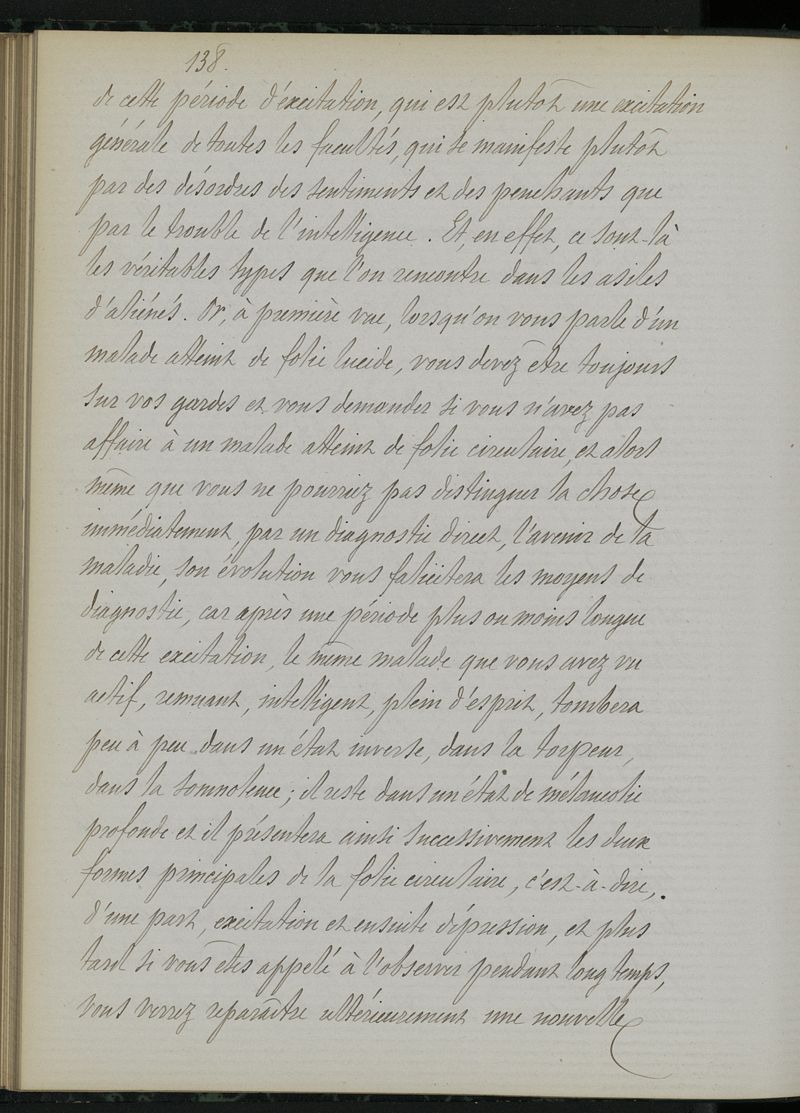 138.
de cette période d'éxcitation, qui est plutôt une excitation
générale de toutes les facultés, qui se manifeste plutôt
par des désordres des sentiments et des penchants que
par le trouble de l'intelligence. Et, en effet, ce sont-là
les véritables types que l'on rencontre dans les asiles
d'aliénés. Or, à première vue, lorsqu'on vous parle d'un
malade atteint de folie lucide, vous devez être toujours
sur vos gardes et vous demander si vous n'avez pas
affaire à un malade atteint de folie circulaire, et alors
même que vous ne pourriez pas distinguer la chose
immédiatement, par un diagnostic direct, l'avenir de la
maladie, son évolution vous falicitera les moyens de
diagnostic, car après une période plus ou moins longue
de cette excitation, le même malade que vous avez vu
actif, remuant, intelligent, plein d'esprit, tombera
peu à peu dans un état inverse, dans la torpeur,
dans la somnolence ; il reste dans un état de mélancolie
profonde et il présentera ainsi successivement les deux
formes principales de la folie circulaire, c'est-à-dire,
d'une part, excitation et ensuite dépression, et plus
tard si vous êtes appelé à l'observer pendant long temps,
vous verrez reparaître ultérieurement une nouvelle